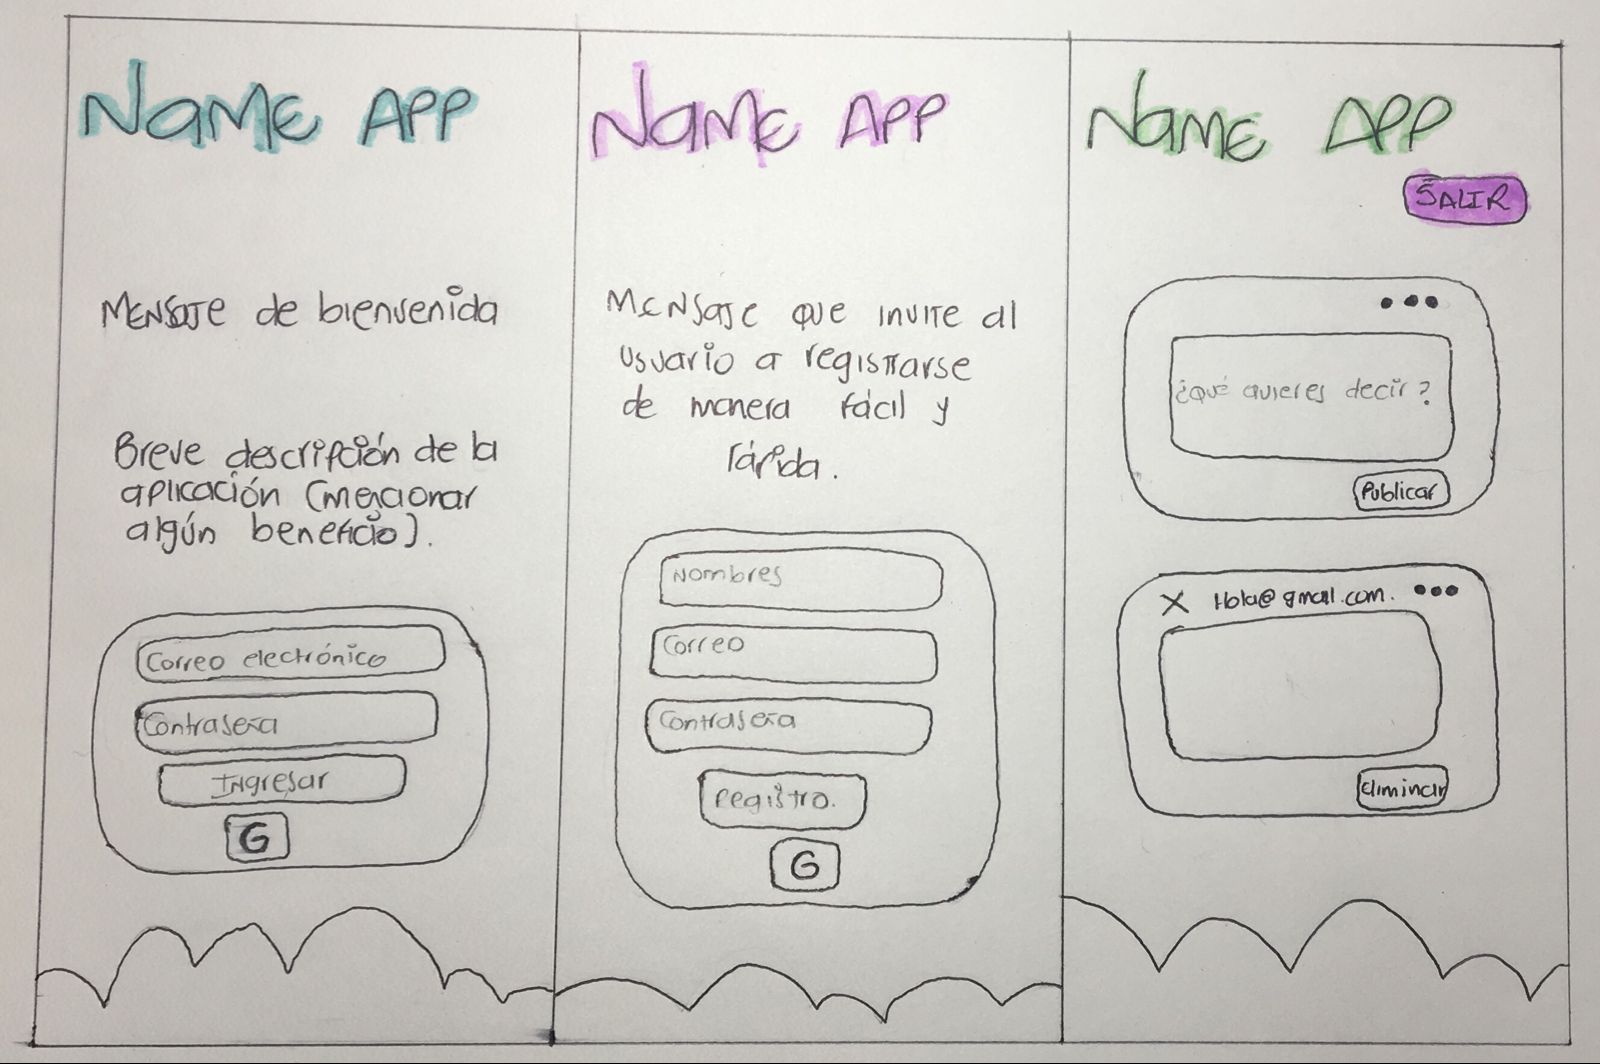 NaME APP
MENSaJE de bienvenida
Breve descripción de la
aplicación (mencionar
algún beneficio).
Correo electrónico
Contraseña
INgresar
G
NaME APP
MENSaJE QUE INVITE al
usuario a registrarse
de manera fácil y
rápida.
Nombres
Correo
Contraseña
Registro.
G
NaME APP
SALIR
¿Qué quieres decir?
Publicar
X Hola@gmail.com. •••
Eliminar